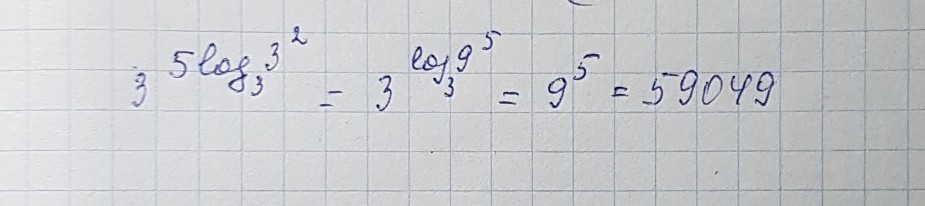 3^{5log_3 3^2} = 3^{log_3 9^5} = 9^5 = 59049